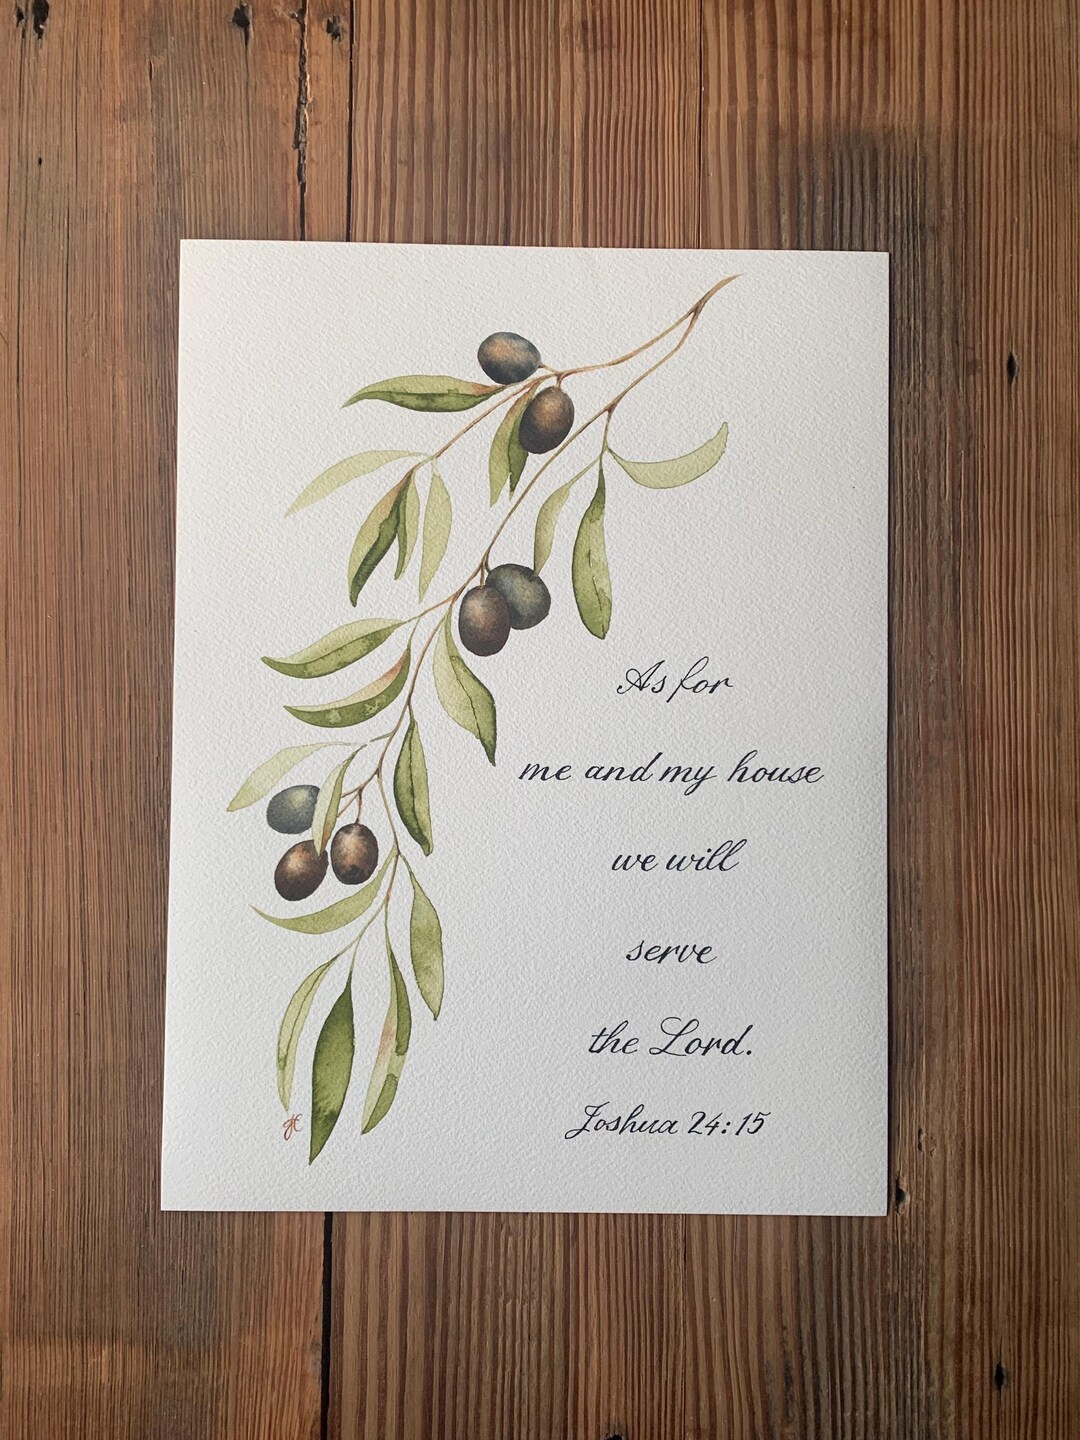 As for
me and my house
we will
serve
the Lord.
Joshua 24:15